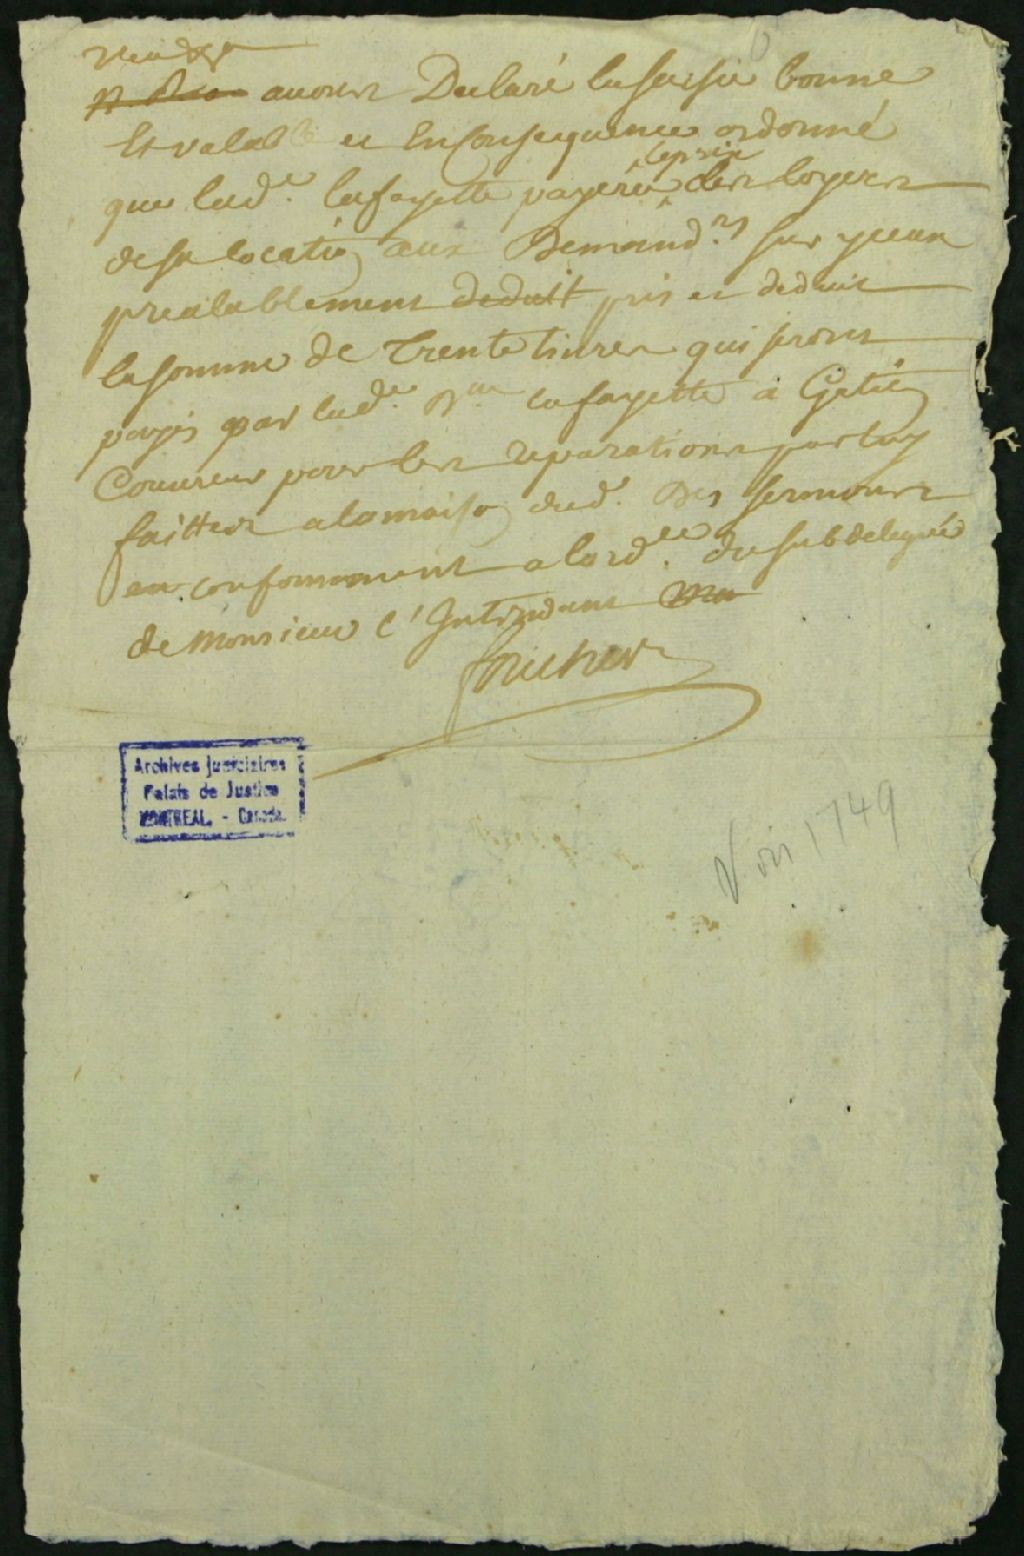 avons Declaré la saisie bonne
Et valable et En Consequence ordonné
que lad.e lafayette payera le prix des loyers
de sa locatio͞n aux Demand.rs sur yceux
prealablement deduit pris et deduit
la somme de Trente livres qui seront
payés par lad.e D.me lafayette à Gatien
Couvreur pour les reparations par luy
faittes a la maiso͞n dud. Des sermons
en conformement a lord.ce du subdelegué
de Monsieur l'Intendant
foucher
Archives judiciaires
Palais de Justice
MONTREAL. - Canada.
Voir 1749